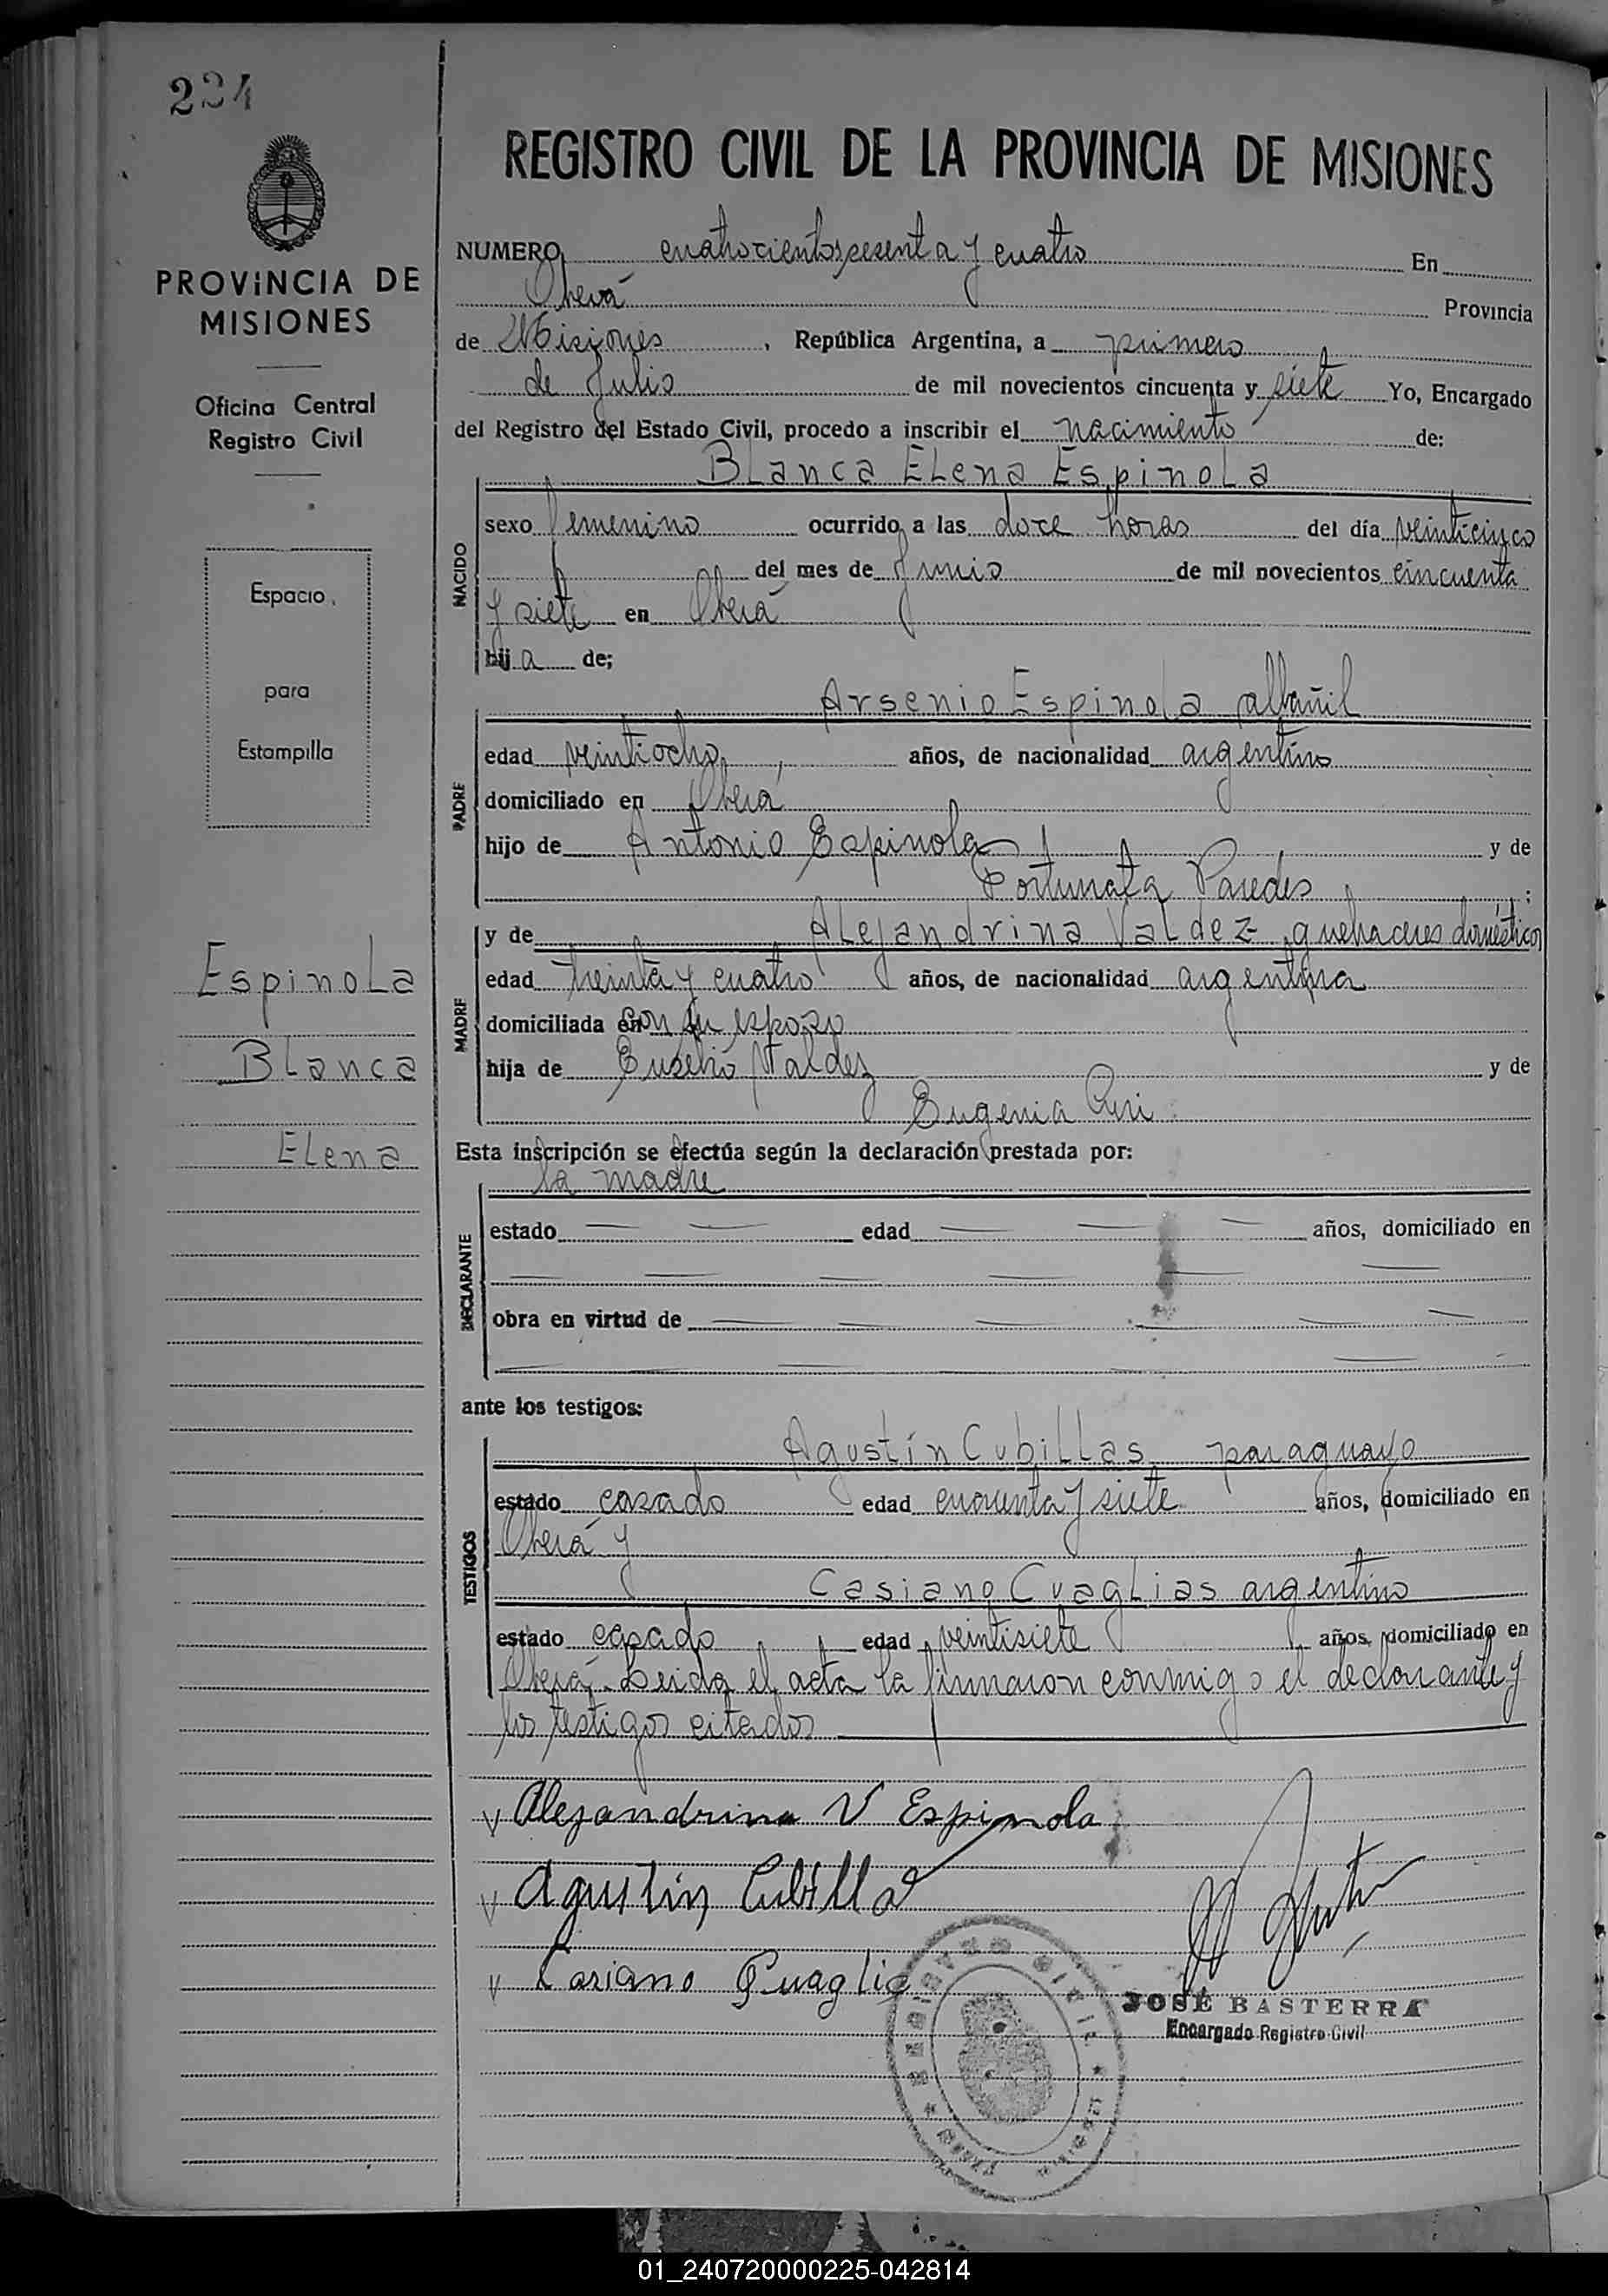 224
PROVINCIA DE
MISIONES
Oficina Central
Registro Civil
Espacio
para
Estampilla
Espinola
Blanca
Elena
REGISTRO CIVIL DE LA PROVINCIA DE MISIONES
NUMERO cuatrocientos sesenta y cuatro En
Oberá Provincia
de Misiones, República Argentina, a primero
de Julio de mil novecientos cincuenta y siete Yo, Encargado
del Registro del Estado Civil, procedo a inscribir el nacimiento de:
Blanca Elena Espinola
NACIDO
sexo femenino ocurrido a las doce horas del día veinticinco
del mes de Junio de mil novecientos cincuenta
y siete en Oberá
hija de;
Arsenio Espinola albañil
PADRE
edad veintiocho años, de nacionalidad argentino
domiciliado en Oberá
hijo de Antonio Espinola y de
Fortunata Paredes ;
MADRE
y de Alejandrina Valdez quehaceres domésticos
edad treinta y cuatro años, de nacionalidad argentina
domiciliada en con su esposo
hija de Eusebio Valdez y de
Eugenia
Esta inscripción se efectúa según la declaración prestada por:
la madre
DECLARANTE
estado edad años, domiciliado en
obra en virtud de
ante los testigos:
Agustín Cubillas paraguayo
TESTIGOS
estado casado edad cuarenta y siete años, domiciliado en
Oberá y
Casiano Cuaglias argentino
estado casado edad veintisiete años, domiciliado en
Oberá. Leida el acta la firmaron conmigo el declarante y
los testigos citados
Alejandrina V Espinola
Agustin Cubilla
Casiano Cuaglia
JOSÉ BASTERRA
Encargado Registro Civil
01_240720000225-042814